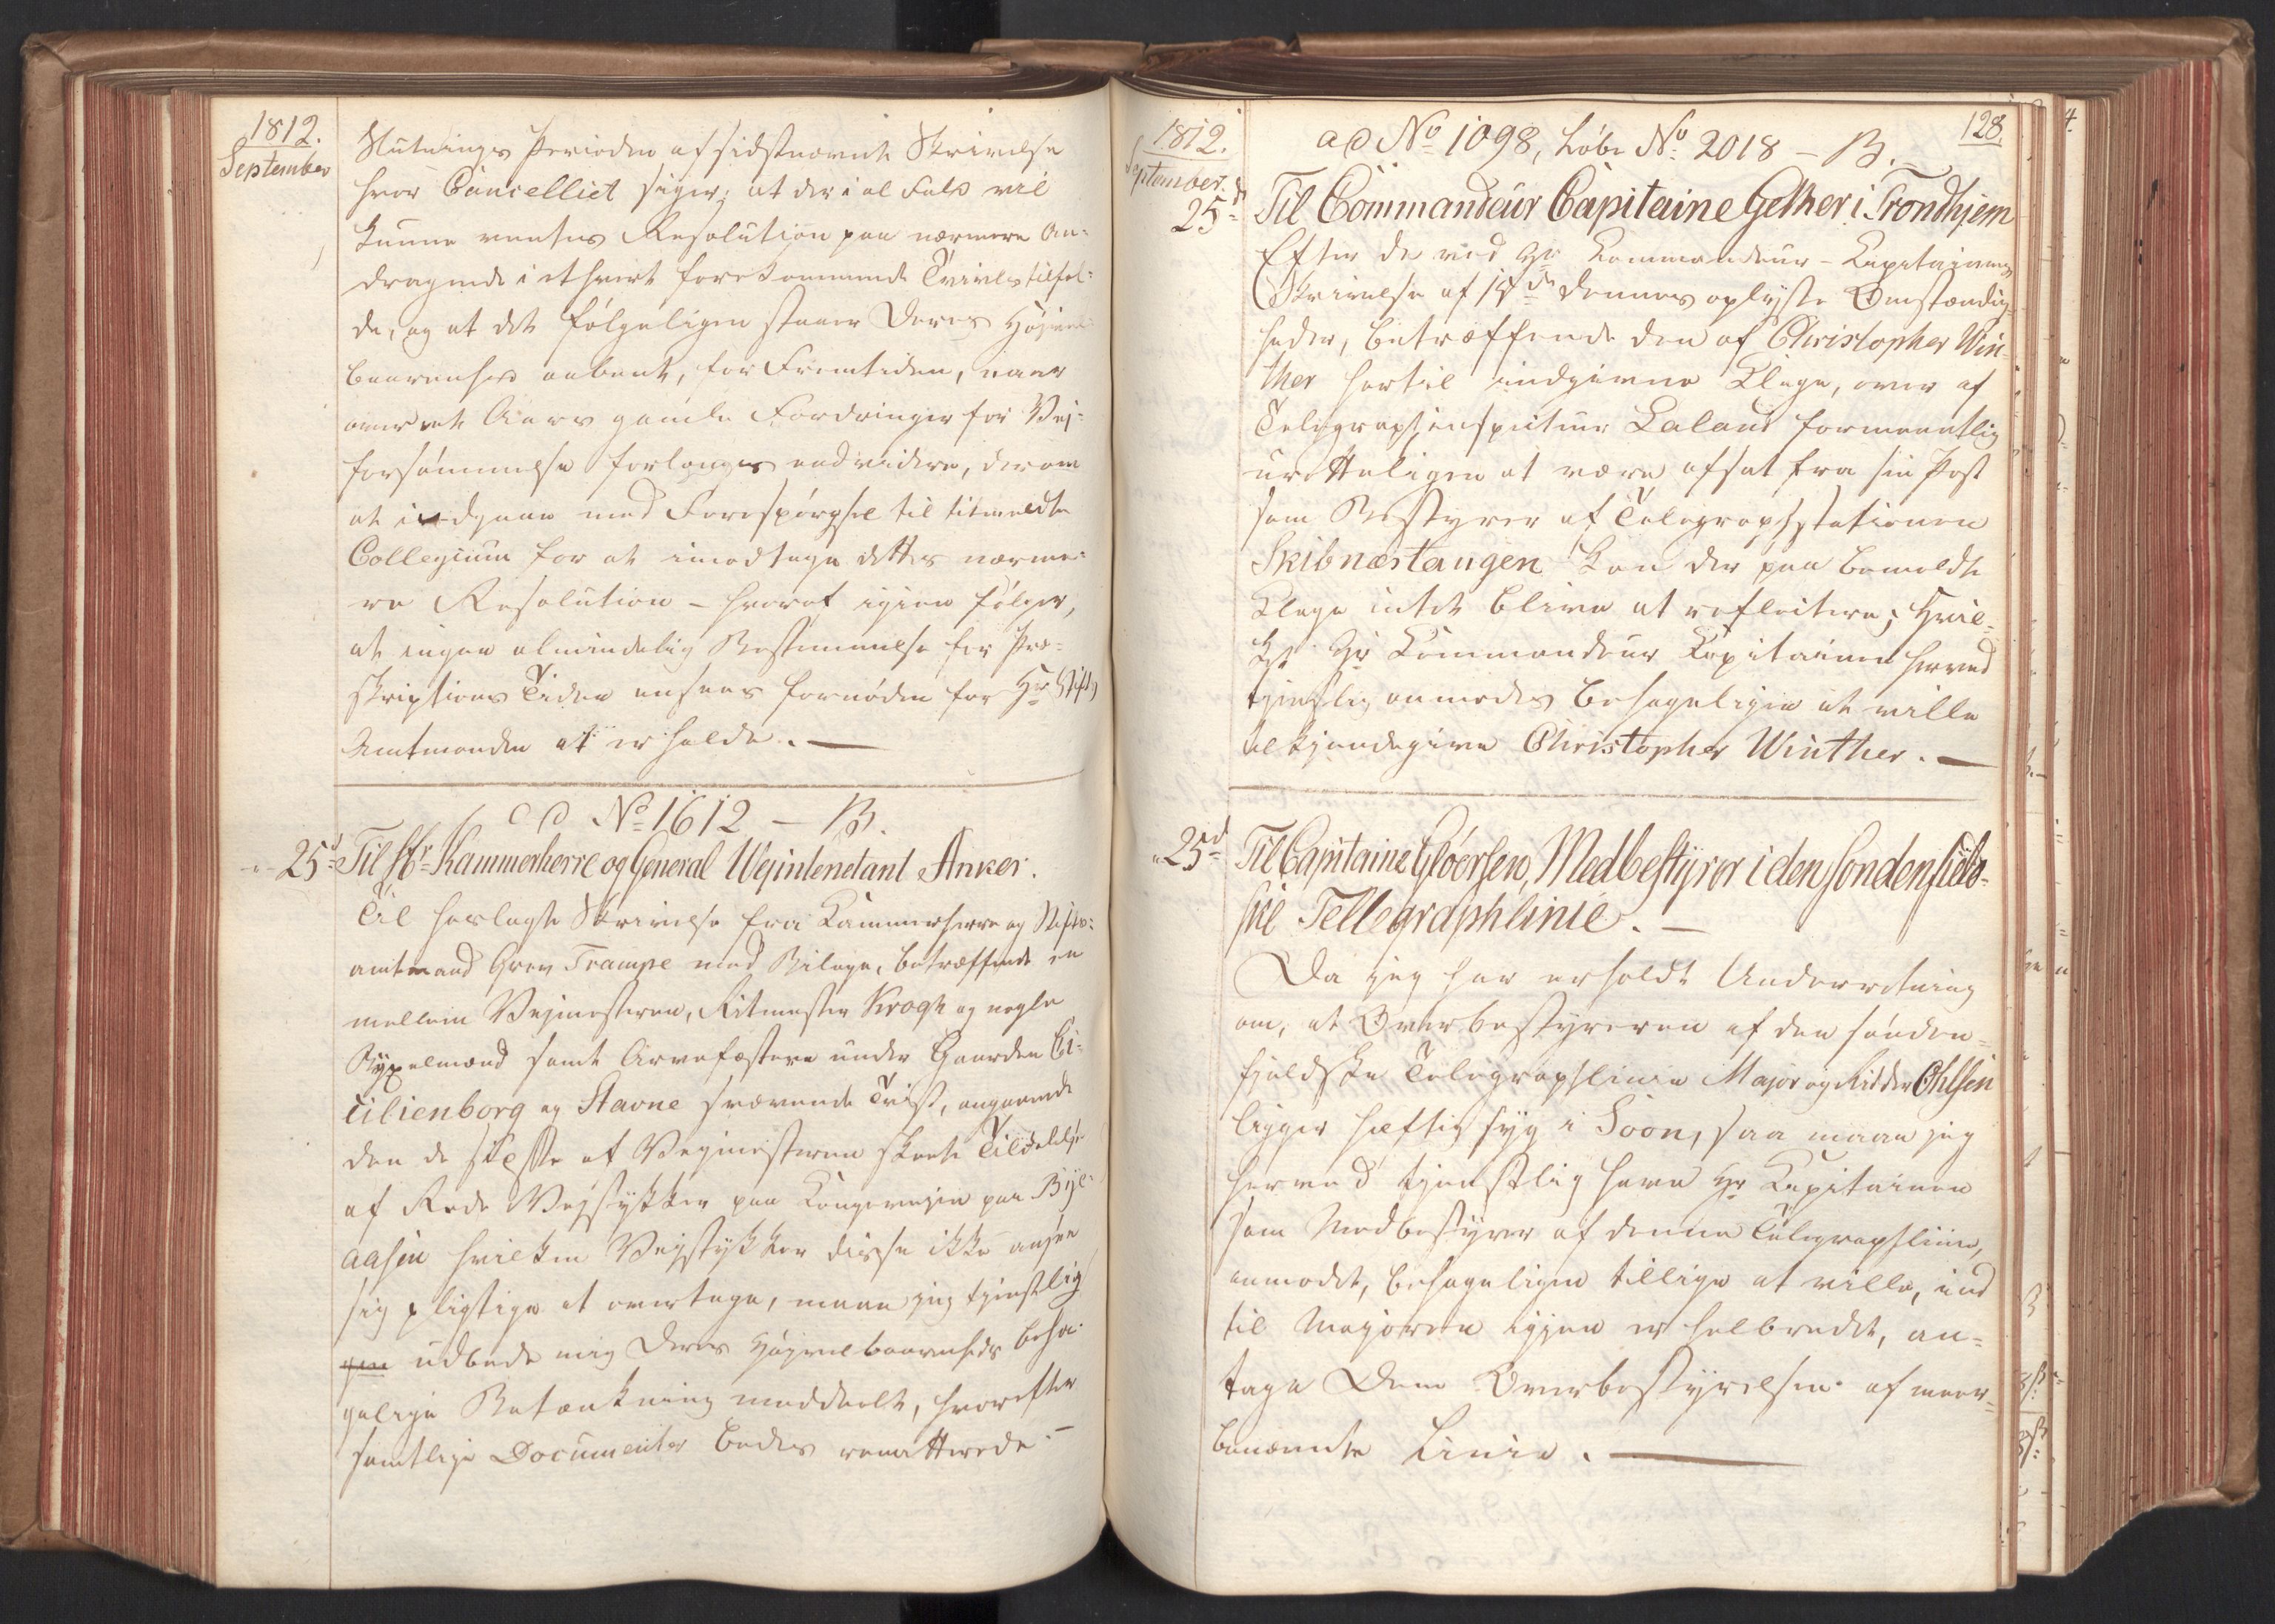 1812.
September
Slutnings Perioden af sidstnævnte Skrivelse
hvor Cancelliet siger, at der i al Fald vil
kunne ventes Resolution paa nærmere An-
dragende i ethvert forekommende Tvivlstilfæl-
de, og at det følgeligen staaer Deres Højvel-
baarenhed aabent, for Fremtiden, naar
over et Aars gamle Fordringer for Vej-
forsømmelse forlanges inddrevne, derom
at indgaae med Forespørgsel til bemeldte
Collegium for at imodtage dettes nærme-
re Resolution - hvoraf igien følger,
at ingen almindelig Bestemmelse for Præ-
skriptions Tiden ansees fornøden for Hr Stift-
Amtmanden at erholde. —
ad No 1612 - B.
- 25d Til Hr Kammerherre og General Wejintendant Anker.
Til hoslagte Skrivelse fra Kammerherre og Stifts-
amtmand Grev Trampe med Bilage, betræffende en
mellem Vejmesteren, Ritmester Krogh og nogle
Rypelmænd samt Arvefæstere under Gaarden Ci-
cilienborg og Stavne svævende Tvist, angaaende
den de sidste af Vejmesteren skeete Tildelelse
af Rode Vejstykker paa Kongevejen paa Bye-
aasen hvilken Vejstykker disse ikke ansee
sig pligtige at overtage, maae jeg tjenstlig
gen udbede mig Deres Højvelbaarenheds beha-
gelige Betænkning meddeelt, hvorefter
samtlige Documenter bedes remitterede. —
1812.
September.
128
ad No 1098, Løbe No 2018 - B.
25d Til Commandeur Capitaine Gether i Trondhjem
Efter de ved Hr Kommandeur-Kapitainens
Skrivelse af 15de dennes oplyste Omstændig-
heder, betræffende den af Christopher Win-
ther hertil indgivne Klage, over af
Telegraphinspecteur Lalaud formeentlig
uretteligen at være afsat fra sin Post
som Bestyrer af Telegraphstationen
Skibnæstangen kan der paa bemeldte
Klage intet blive at reflectere; Hvil-
ket Hr Kommandeur Kapitainen herved
tjenstlig anmodes behageligen at ville
tilkjendegive Christopher Winther. —
- 25d Til Capitaine Gløersen, Medbestyrer i den søndenfields-
ske Tellegraphlinie. —
Da jeg har erholdt Underretning
om, at Overbestyreren af den sønden-
fjeldske Telegraphlinie Major og Ridder Ohlsen
ligger hæftig syg i Soon, saa maae jeg
herved tjenstlig have Hr Kapitainen
som Medbestyrer af denne Telegraphlinie,
anmodet, behageligen tillige at ville, ind
til Majoren igjen er helbredet, an-
tage Dem Overbestyrelsen af meer-
benævnte Linie. —